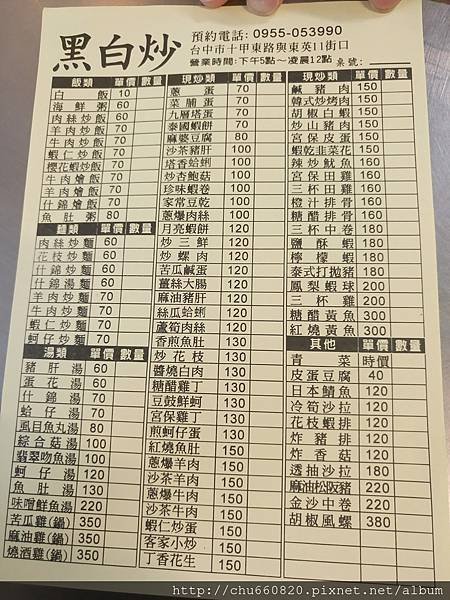 黑白炒
預約電話: 0955-053990
台中市十甲東路與東英11街口
營業時間:下午5點～凌晨12點 桌號:
飯類 單價 數量
白飯 10
海鮮粥 60
肉絲炒飯 60
羊肉炒飯 70
牛肉炒飯 70
蝦仁炒飯 70
櫻花蝦炒飯 70
牛肉燴飯 70
羊肉燴飯 70
什錦燴飯 70
魚肚粥 80
麵類 單價 數量
肉絲炒麵 60
花枝炒麵 60
什錦炒麵 60
什錦湯麵 60
羊肉炒麵 70
牛肉炒麵 70
蝦仁炒麵 70
蚵仔炒麵 70
湯類 單價 數量
豬肝湯 60
蛋花湯 60
什錦湯 70
蛤仔湯 70
虱目魚丸湯 80
綜合菇湯 100
翡翠吻魚湯 100
蚵仔湯 120
魚肚湯 130
味噌鮮魚湯 220
苦瓜雞(鍋) 350
麻油雞(鍋) 350
燒酒雞(鍋) 350
現炒類 單價 數量
蔥蛋 70
菜脯蛋 70
九層塔蛋 70
泰國蝦餅 70
麻婆豆腐 80
沙茶豬肝 100
塔香蛤蜊 100
炒杏鮑菇 100
珍味蝦卷 100
家常豆乾 100
蔥爆肉絲 100
月亮蝦餅 120
炒三鮮 120
炒螺肉 120
苦瓜鹹蛋 120
薑絲大腸 120
麻油豬肝 120
絲瓜蛤蜊 120
蘆筍肉絲 120
香煎魚肚 130
炒花枝 130
醬燒白肉 130
糖醋雞丁 130
豆鼓鮮蚵 130
宮保雞丁 130
煎蚵仔蛋 130
紅燒魚肚 150
蔥爆羊肉 150
沙茶羊肉 150
蔥爆牛肉 150
沙茶牛肉 150
蝦仁炒蛋 150
客家小炒 150
丁香花生 150
現炒類 單價 數量
鹹豬肉 150
韓式炒烤肉 150
胡椒白蝦 150
炒山豬肉 150
宮保皮蛋 150
蝦乾韭菜花 150
辣炒魷魚 160
宮保田雞 160
三杯田雞 160
橙汁排骨 160
糖醋排骨 160
三杯中卷 180
鹽酥蝦 180
檸檬蝦 180
泰式打拋豬 180
鳳梨蝦球 200
三杯雞 200
糖醋黃魚 300
紅燒黃魚 300
其他 單價 數量
青菜 時價
皮蛋豆腐 40
日本鯖魚 120
冷筍沙拉 120
花枝蝦排 120
炸豬排 120
炸香菇 120
透抽沙拉 180
麻油松阪豬 220
金沙中卷 220
胡椒風螺 380
http://chu660820.pixnet.net/album